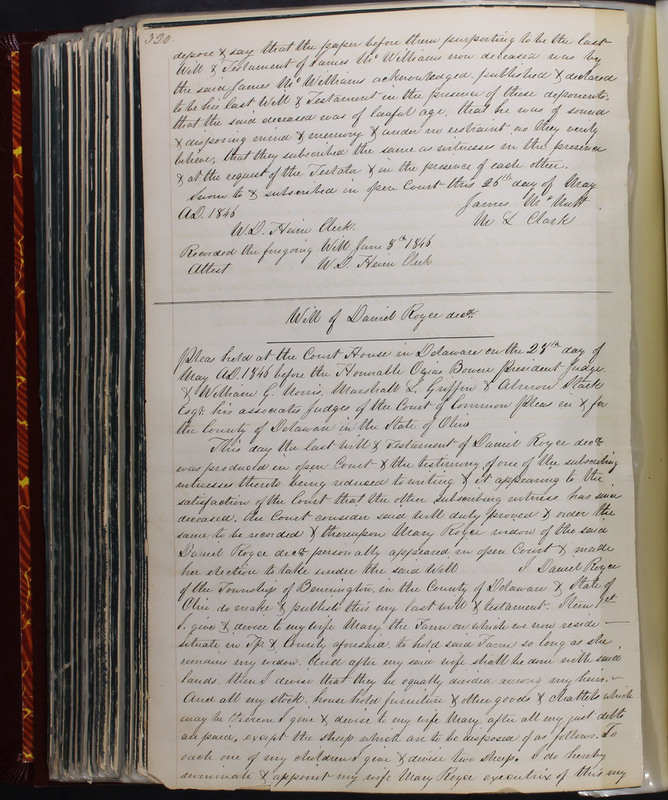 320
depose & say that the paper before them purporting to be the last
Will & Testament of James McWilliams now deceased was by
the said James McWilliams acknowledged, published & declared
to be his last Will & Testament in the presence of these deponents,
that the said deceased was of lawful age, that he was of sound
& disposing mind & memory & under no restraint as they verily
believe, that they subscribed the same as witnesses in the presence
& at the request of the Testator & in the presence of each other.
Sworn to & subscribed in open Court this 26th day of May
A.D. 1846
James McNutt
W.D. Heim Clerk.
M L Clark
Recorded the foregoing Will June 8th 1846
Attest W.D. Heim Clerk
Will of Daniel Royce decd.
Pleas held at the Court House in Delaware on the 28th day of
May A.D. 1846 before the Honorable Ozias Bowen President Judge
& William G. Norris, Marshall L. Griffin & Almon Stark
Esqs. his associate Judges of the Court of Common Pleas in & for
the County of Delaware in the State of Ohio
This day the last will & Testament of Daniel Royce decd.
was produced in open Court & the testimony of one of the subscribing
witnesses thereto being reduced to writing & it appearing to the
satisfaction of the Court that the other subscribing witness has since
deceased, the Court consider said Will duly proved & order the
same to be recorded & thereupon Mary Royce widow of the said
Daniel Royce decd. personally appeared in open Court & made
her election to take under the said Will I Daniel Royce
of the Township of Bennington, in the County of Delaware & State of
Ohio do make & publish this my last will & testament. Item 1st
I give & devise to my wife Mary the Farm on which we now reside —
situate in Tp. & County aforesaid to hold said Farm so long as she
remains my widow. And after my said wife shall be done with said
lands then I devise that they be equally divided among my heirs. —
And all my stock, household furniture & other goods & chattels which
may be thereon I give & devise to my wife Mary after all my just debts
are paid, except the sheep which are to be disposed of as follows. To
each one of my children I give & devise two sheep. I do hereby
nominate & appoint my wife Mary Royce executrix of this my